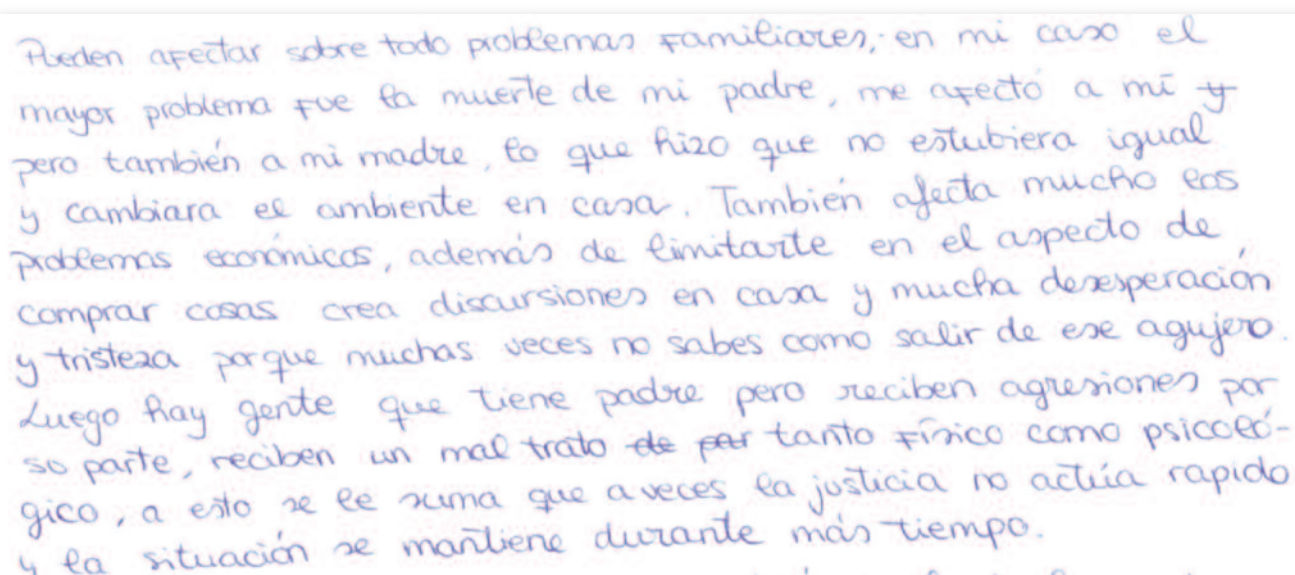 Pueden afectar sobre todo problemas familiares, en mi caso el
mayor problema fue la muerte de mi padre, me afectó a mí y
pero también a mi madre, lo que hizo que no estubiera igual
y cambiara el ambiente en casa. También afecta mucho los
problemas económicos, además de limitarte en el aspecto de,
comprar cosas crea discursiones en casa y mucha desesperación
y tristeza porque muchas veces no sabes como salir de ese agujero.
Luego hay gente que tiene padre pero reciben agresiones por
so parte, reciben un mal trato de por tanto físico como psicoló-
gico, a esto se le suma que a veces la justicia no actúa rapido
y la situación se mantiene durante más tiempo.